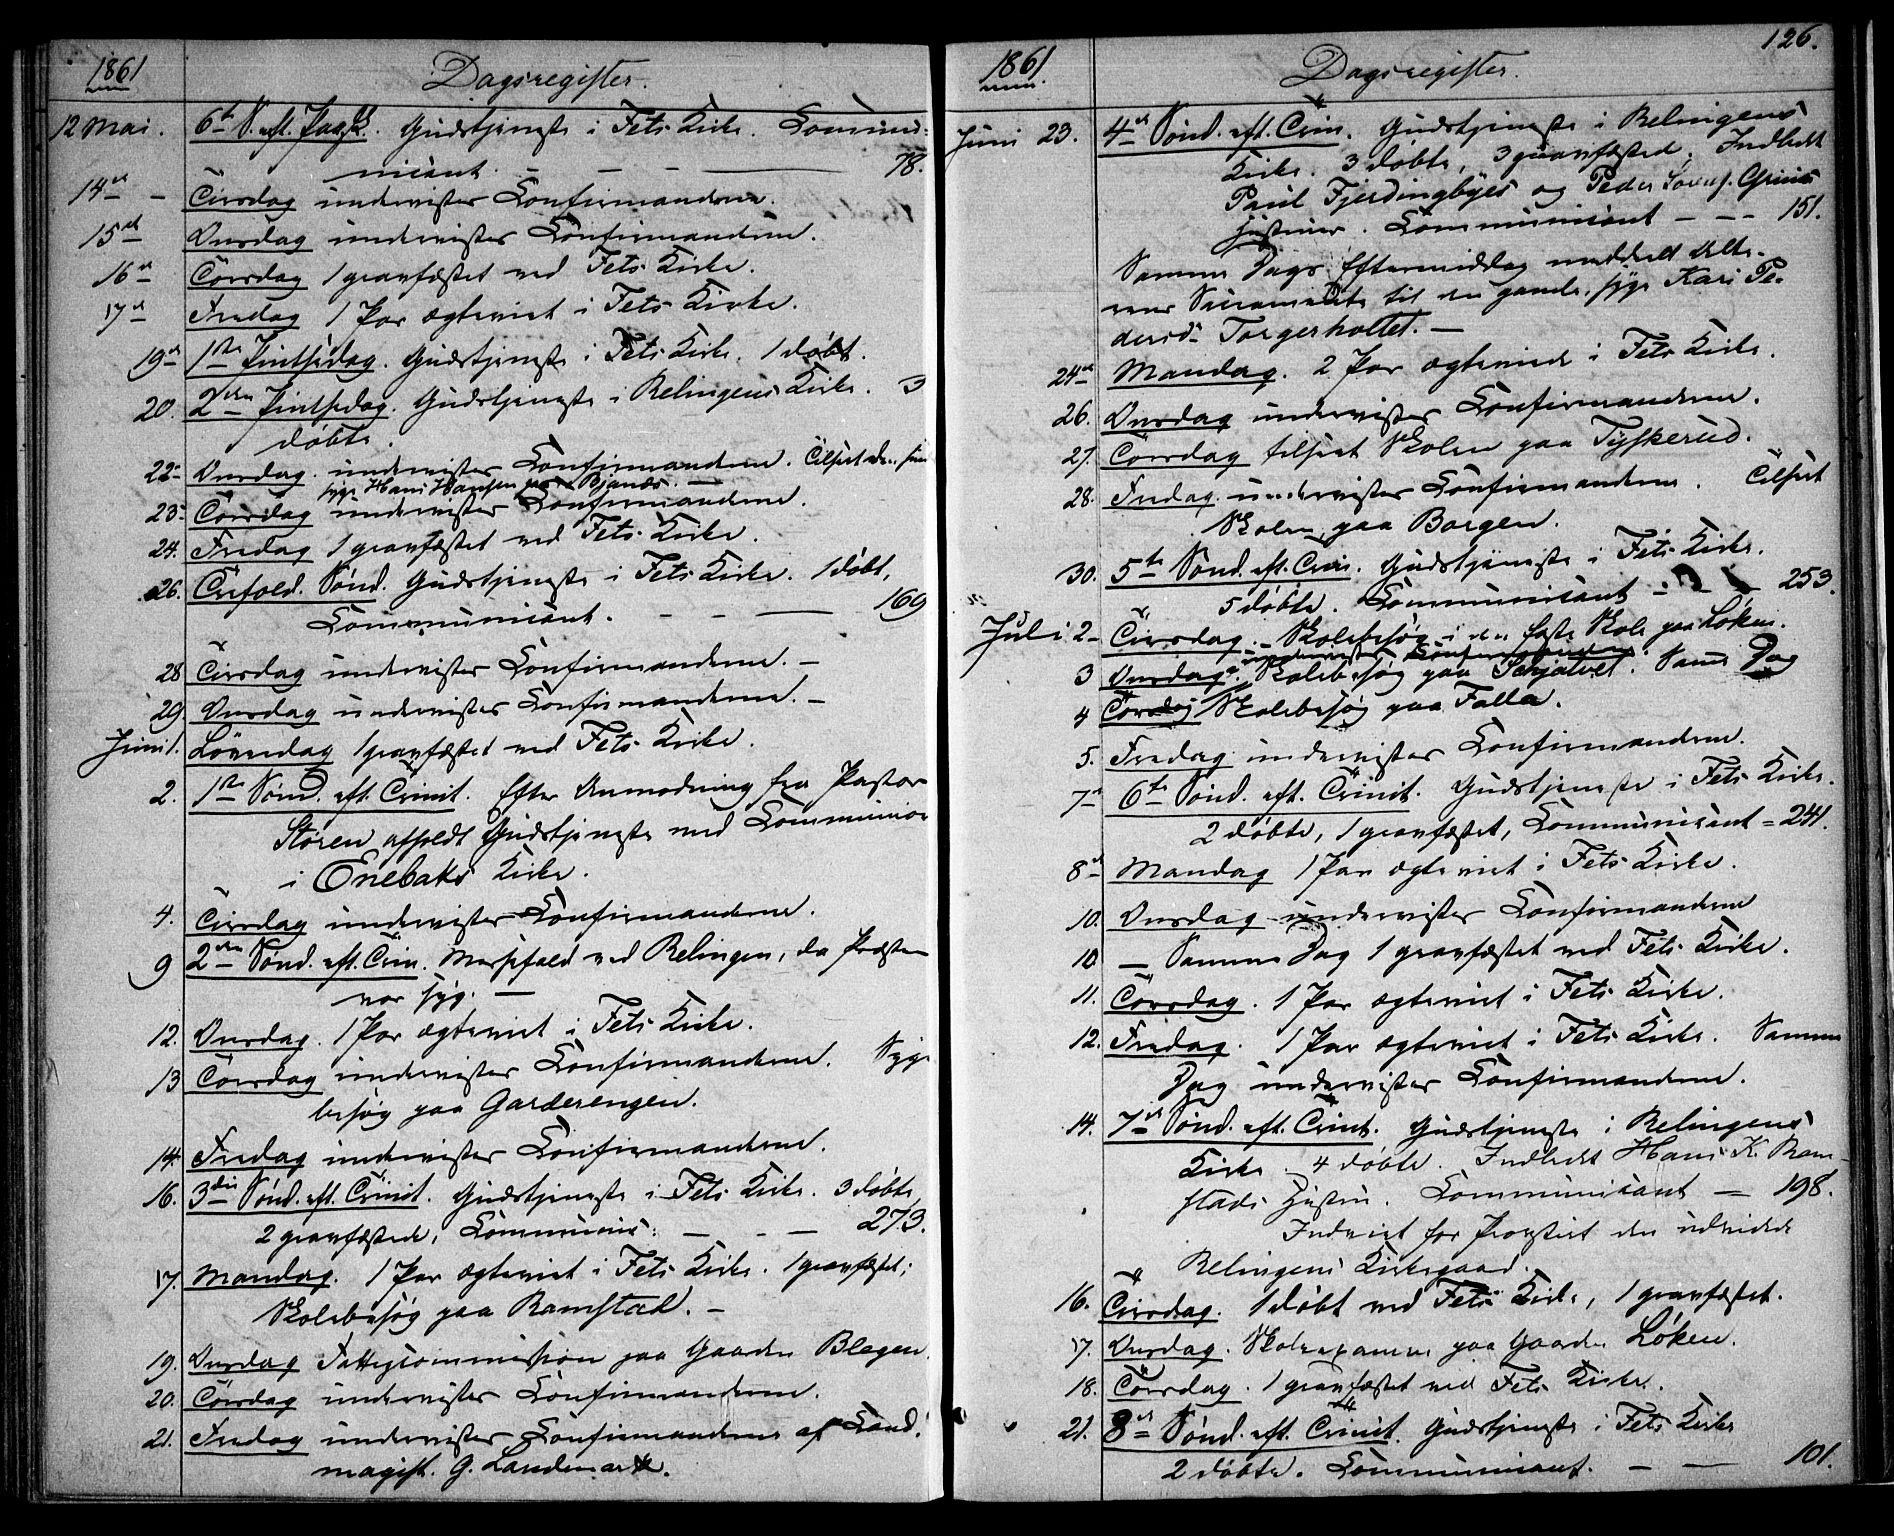 1861 Dagsregister.
12 Mai. 6te S. eft. Paask. Gudstjeneste i Fets Kirke. Commu-
nicant. — — — 78.
14de — Tirsdag underviser Confirmanderne.
15de Onsdag underviser Confirmanderne.
16de Torsdag 1 gravfæstet ved Fets Kirke.
17de Fredag 1 Par ægteviet i Fets Kirke.
19de 1ste Pintsedag. Gudstjeneste i Fets Kirke. 1 døbt.
20. 2den Pintsedag. Gudstjeneste i Relingens Kirke. 3
døbte.
22- Onsdag. underviser Confirmanderne. Tilseet den
syge Hans Hansen paa Bjanæs. —
23- Torsdag underviser Confirmanderne.
24. Fredag 1 gravfæstet ved Fets Kirke.
26. Trefold. Sønd. Gudstjeneste i Fets Kirke. 1 døbt,
Communicant. — — — 169
28 Tirsdag underviser Confirmanderne. —
29 Onsdag underviser Confirmanderne. —
Juni 1. Løverdag 1 gravfæstet ved Fets Kirke.
2. 1ste Sønd. eft. Trinit. Efter Anmodning fra Pastor
Støren afholdt Gudstjeneste med Communion
i Enebaks Kirke.
4. Tirsdag underviser Confirmanderne.
9 2den Sønd. eft. Trin. Messefald ved Relingen, da Præsten
var syg. —
12. Onsdag. 1 Par ægteviet i Fets Kirke.
13 Torsdag underviser Confirmanderne. Syge
besøg paa Garderengen.
14. Fredag underviser Confirmanderne.
16. 3die Sønd. eft. Trinit. Gudstjeneste i Fets Kirke. 3 døbte,
2 gravfæstede, Communic: — — — 273.
17. Mandag. 1 Par ægteviet i Fets Kirke. 1 gravfæstet;
Skolebesøg paa Ramstad. —
19. Onsdag Fattigcommission paa Gaarden Blegen.
20. Torsdag underviser Confirmanderne.
21. Fredag underviser Confirmanderne af Cand.
magist. G. Landmark.
126.
1861. Dagsregister.
Juni 23. 4de Sønd. eft. Trin. Gudstjeneste i Relingens
Kirke. 3 døbte, 3 gravfæstede, Indledt
Paul Fjerdingbyes og Peder
Hustruer. Communicant — — — 151.
Samme Dags Eftermiddag meddelt Alte-
rens Sacramente til den gamle, syge Kari Pe-
dersd. Torgerholtet. —
24de Mandag. 2 Par ægteviede i Fets Kirke.
26. Onsdag underviser Confirmanderne.
27. Torsdag tilseet Skolen paa Tyskerud.
28. Fredag underviser Confirmanderne. Tilseet
Skolen paa Borgen.
30. 5te Sønd. eft. Trin. Gudstjeneste i Fets Kirke.
5 døbte. Communicant — 253.
Juli 2 — Tirsdag. — Skolebesøg i den faste Skole paa Løken.
underviser Confirmanderne
3 Onsdag. Skolebesøg paa Samme Dag
4 Torsdag Skolebesøg paa Falla.
5. Fredag underviser Confirmanderne.
7de 6te Sønd. eft. Trinit. Gudstjeneste i Fets Kirke.
2 døbte, 1 gravfæstet, Communicant = 241.
8de Mandag 1 Par ægteviet i Fets Kirke.
10. Onsdag underviser Confirmanderne
10. — Samme Dag 1 gravfæstet ved Fets Kirke.
11. Torsdag. 1 Par ægteviet i Fets Kirke.
12. Fredag. 1 Par ægteviet i Fets Kirke. Samme
Dag underviser Confirmanderne.
14. 7de Sønd. eft. Trinit. Gudstjeneste i Relingens
Kirke. 4 døbte. Indledt Hans K. Ram-
stads Hustru. Communicant — 198.
Indviet for Provstiet den udvidede
Relingens Kirkegaard.
16. Tirsdag. 1 døbt ved Fets Kirke, 1 gravfæstet.
17. Onsdag. Skoleexamen paa Gaarden Løken.
18. Torsdag. 1 gravfæstet ved Fets Kirke.
21. 8de Sønd. eft. Trinit. Gudstjeneste i Fets Kirke
2 døbte. Communicant. — — 101.